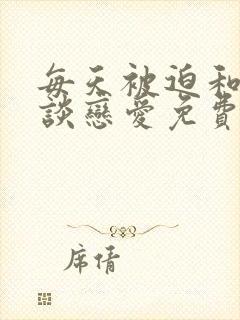 每天被迫和
談戀愛免費
席情